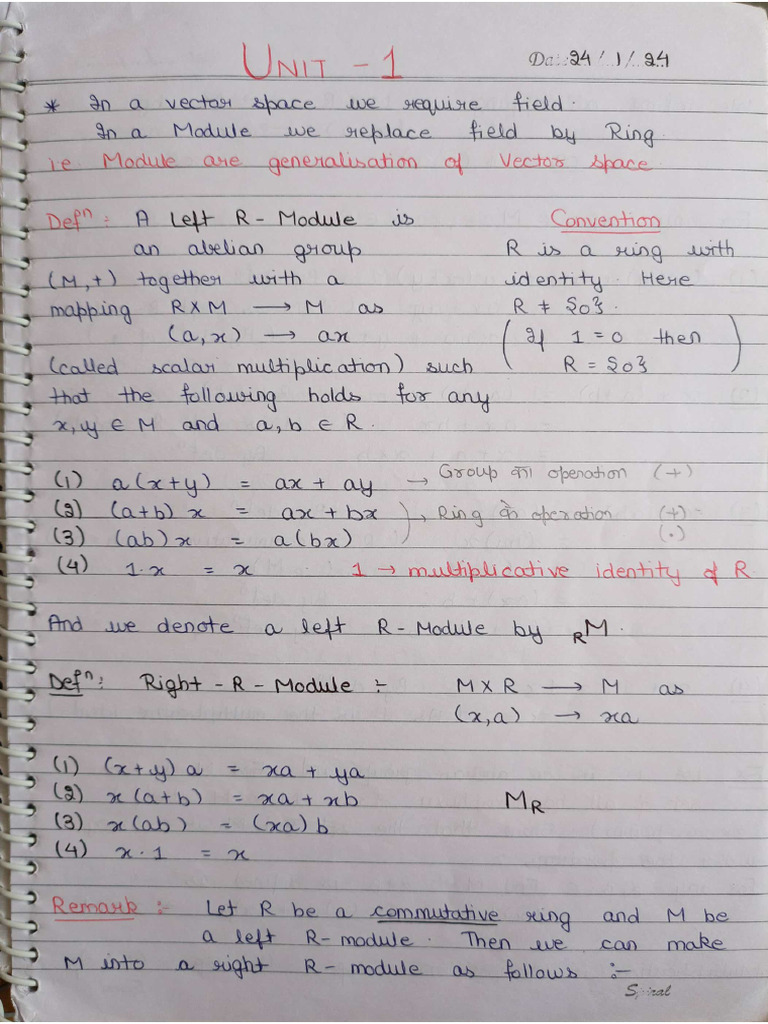 UNIT - 1
Da... 24 / 1 / 24
* In a vector space we require field.
In a Module we replace field by Ring.
i.e Module are generalisation of Vector space
Defⁿ: A Left R-Module is
an abelian group
(M,+) together with a
mapping R×M ⟶ M as
(a,x) ⟶ ax
(called scalar multiplication) such
that the following holds for any
x,y ∈ M and a,b ∈ R.
Convention
R is a ring with
identity. Here
R ≠ {0}.
(If 1=0 then
R = {0})
(1) a(x+y) = ax + ay → Group का operation (+)
(2) (a+b) x = ax + bx } → Ring के operation (+)
(3) (ab)x = a(bx) (·)
(4) 1·x = x 1 → multiplicative identity of R
And we denote a left R-Module by ᵣM.
Defⁿ: Right-R-Module :- M×R ⟶ M as
(x,a) → xa
(1) (x+y)a = xa + ya
(2) x(a+b) = xa + xb M_R
(3) x(ab) = (xa)b
(4) x·1 = x
Remark :- Let R be a commutative ring and M be
a left R-module. Then we can make
M into a right R-module as follows :-
Spiral